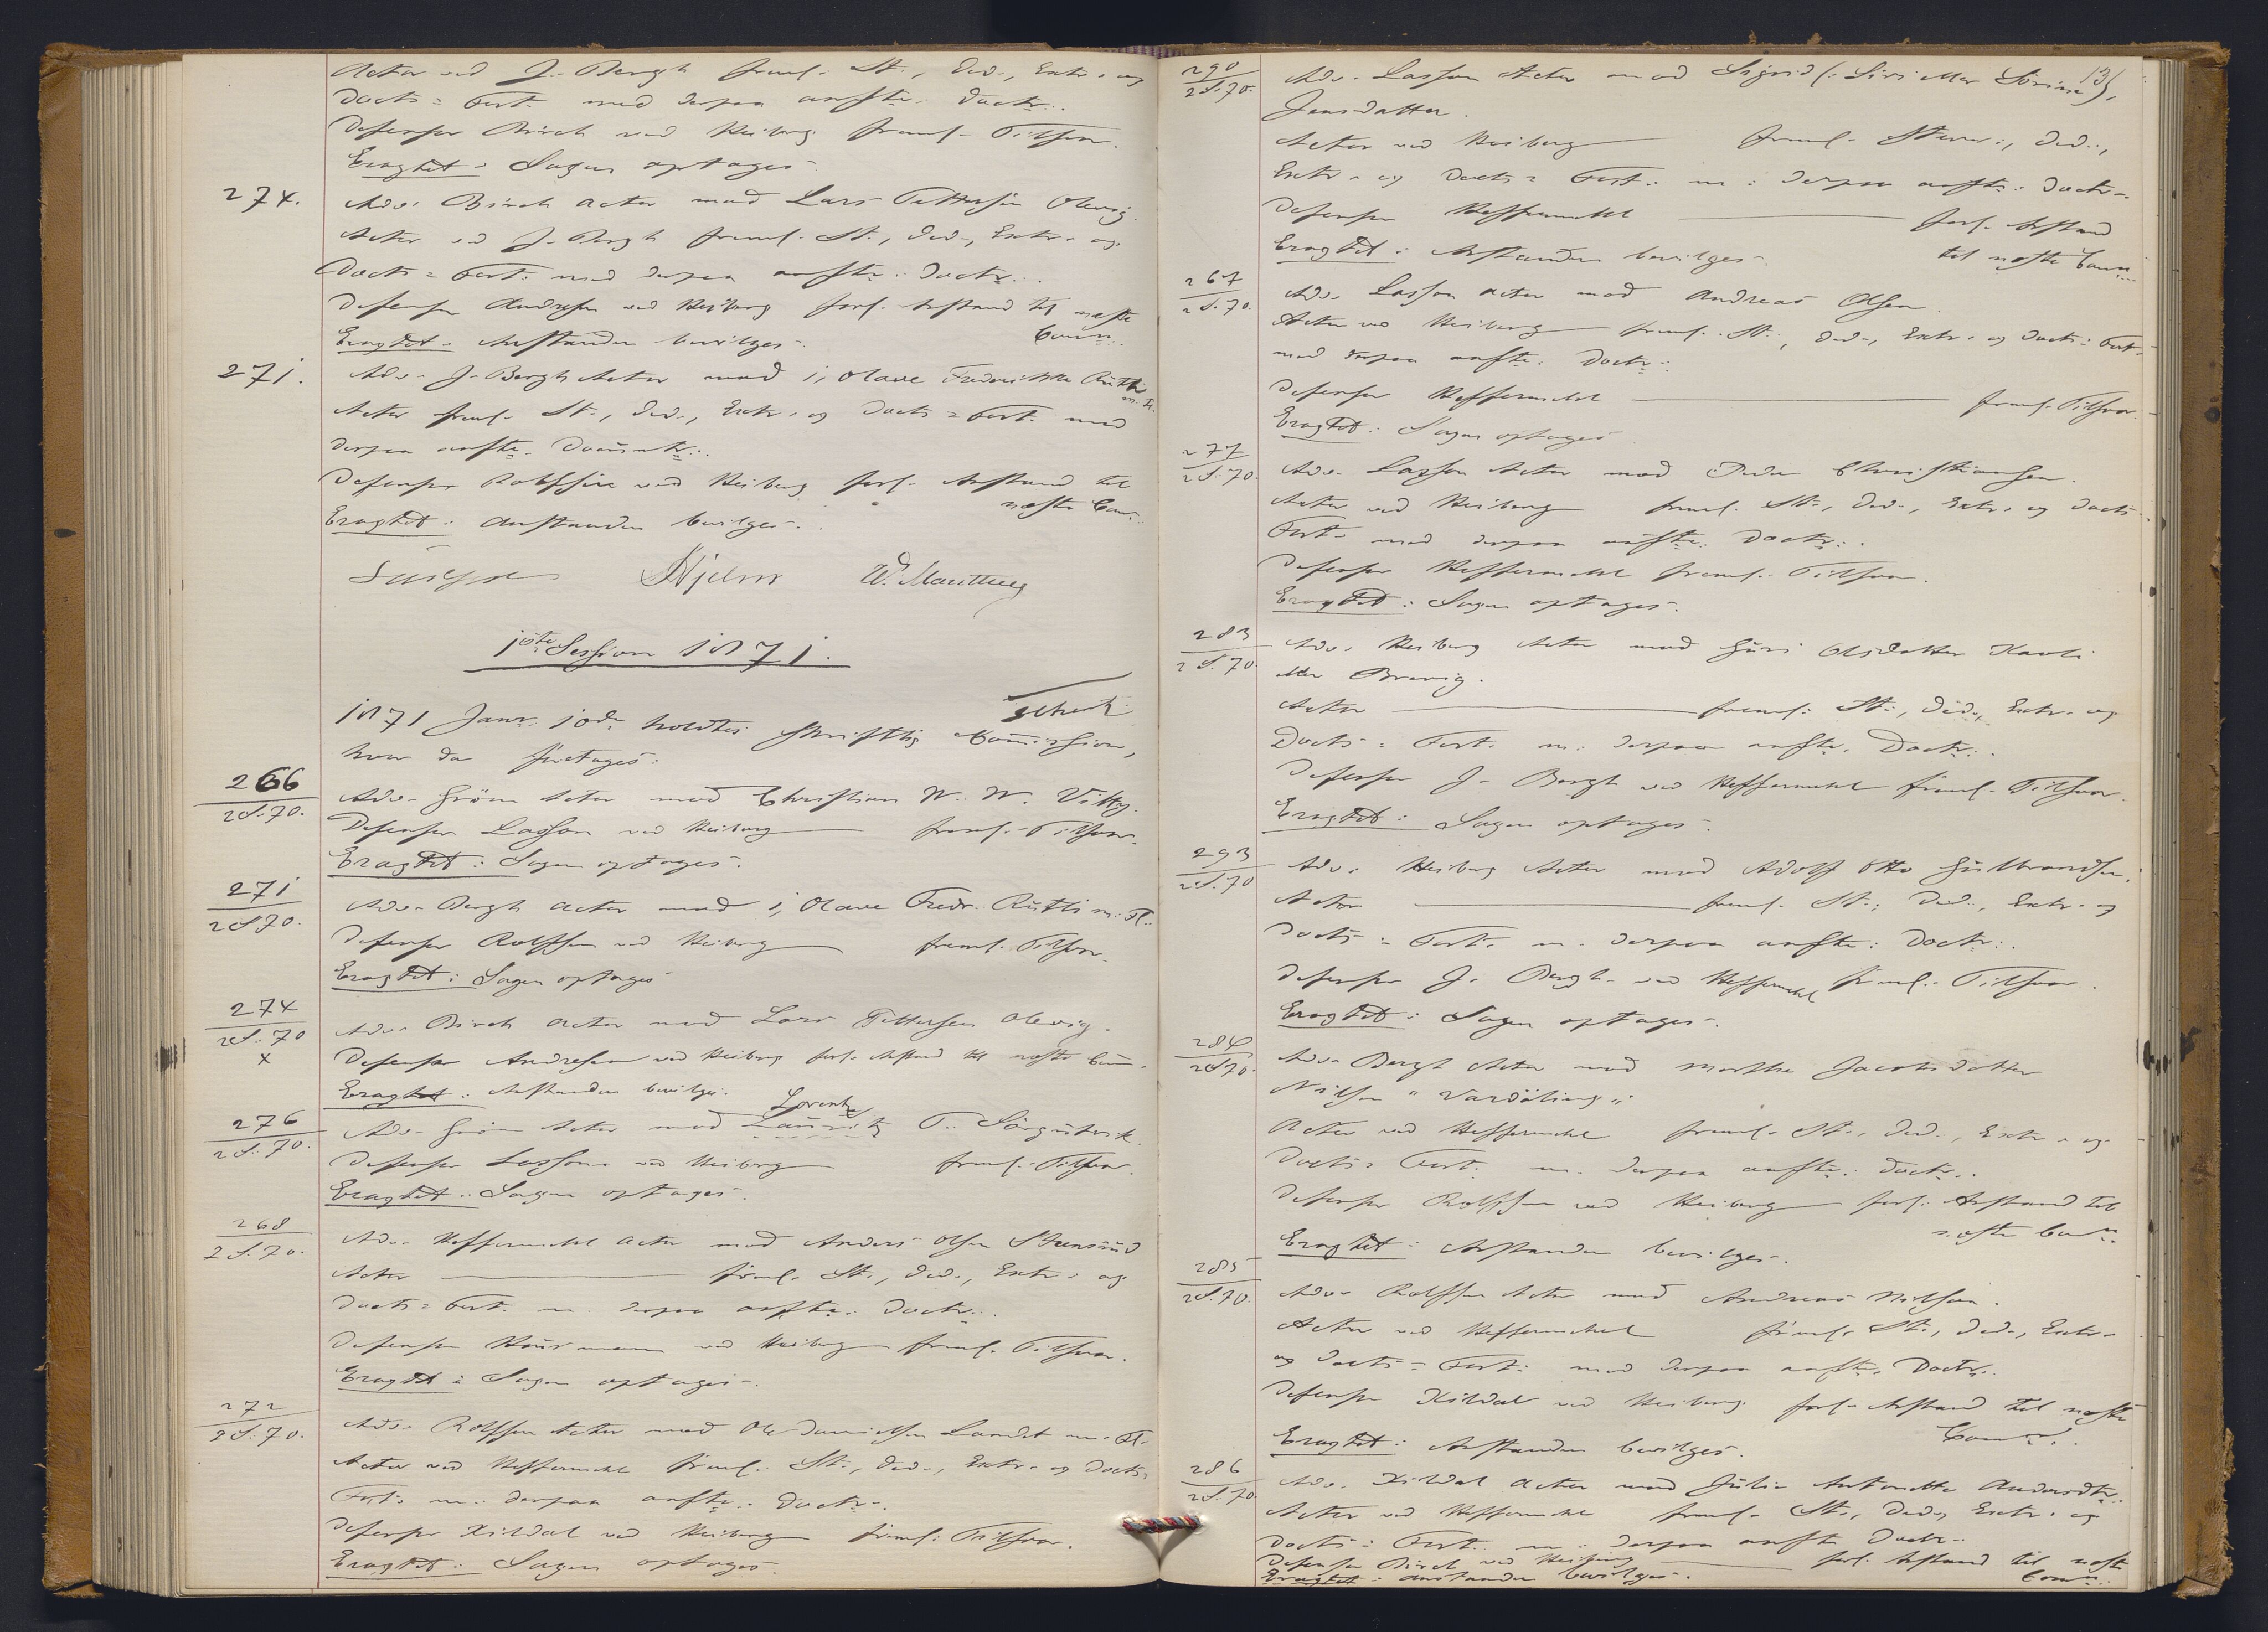 Actor ved J. Bergh freml. St., Ded., Extr. og
Docts = Fort. med derpaa anfte. Doctr.
Defensor Birch ved Heiberg freml. Tilsvar.
Eragtet: Sagen optages.
274. Adv. Birch Actor mod Lars Pettersen Olevig.
Actor ved J. Bergh freml. St., Ded., Extr. og
Docts = Fort. med derpaa anfte. Doctr.
Defensor Andresen ved Heiberg forl. Anstand til næste
Comn.
Eragtet: Anstanden bevilges.
271. Adv. J. Bergh Actor mod 1, Olave Frederikke
m. Fl.
Actor freml. St., Ded., Extr. og Docts = Fort. med
derpaa anfte. Documtr.
Defensor Rolfsen ved Heiberg forl. Anstand til
næste Com.
Eragtet: Anstanden bevilges.
Hjelm
1ste Session 1871.
1871 Janr. 10de holdtes skriftlig Commission,
hvor da foretages:
266
2 S. 70. Adv. Grøm Actor mod Christian W. W.
Defensor Lasson ved Heiberg freml. Tilsvar.
Eragtet: Sagen optages.
271
2 S 70. Adv. Bergh Actor mod 1, Olave Fredr. m. Fl.
Defensor Rolfsen ved Heiberg freml. Tilsvar.
Eragtet: Sagen optages
274
2 S. 70
x
Adv. Birch Actor mod Lars Pettersen Olevig.
Defensor Andresen ved Heiberg forl. Anstand til næste Com.
Eragtet: Anstanden bevilges.
276
2 S. 70. Lorentz
Adv. Grøm Actor mod Lauritz T.
Defensor Lasson ved Heiberg freml. Tilsvar.
Eragtet: Sagen optages.
268
2 S. 70. Adv. Heffermehl Actor mod Anders Olsen
Actor freml. St., Ded., Extr. og
Docts = Fort. m. derpaa anfte. Doctr.
Defensor ved Heiberg freml. Tilsvar.
Eragtet: Sagen optages.
272
2 S. 70. Adv. Rolfsen Actor mod Ole Danielsen m. Fl.
Actor ved Heffermehl freml. St., Ded., Extr. og Docts
Fort. m. derpaa anfte. Doctr.
Defensor Kildal ved Heiberg freml. Tilsvar.
Eragtet: Sagen optages.
131
290
2 S. 70. Adv. Lasson Actor mod Sigrid (: Siri eller Sörine),
Jensdatter.
Actor ved Heiberg freml. Stevn., Ded.,
Extr. og Docts = Fort. m. derpaa anfte. Doctr.
Defensor Heffermehl forl. Anstand
til næste Comn.
Eragtet: Anstanden bevilges.
267
2 S. 70. Adv. Lasson Actor mod Andreas Olsen.
Actor ved Heiberg freml. St., Ded., Extr. og Docts = Fort.
med derpaa anfte. Doctr.
Defensor Heffermehl freml. Tilsvar.
Eragtet: Sagen optages
277
2 S. 70. Adv. Lasson Actor mod Peder Christiansen.
Actor ved Heiberg freml. St., Ded., Extr. og Docts
Fort. med derpaa anfte. Doctr.
Defensor Heffermehl freml. Tilsvar.
Eragtet: Sagen optages.
283
2 S. 70. Adv. Heiberg Actor mod Guri Olsdatter
eller Brevig.
Actor freml. St., Ded., Extr. og
Docts = Fort. m. derpaa anfte. Doctr.
Defensor J. Bergh ved Heffermehl freml. Tilsvar.
Eragtet: Sagen optages.
293
2 S. 70 Adv. Heiberg Actor mod Adolf Otto Gulbrandsen.
Actor freml. St., Ded., Extr. og
Docts = Fort. m. derpaa anfte. Doctr.
Defensor J. Bergh ved Heffermehl freml. Tilsvar.
Eragtet: Sagen optages.
284
2 S 70. Adv. Bergh Actor mod Marthe Jacobsdatter
Nilsen
Actor ved Heffermehl freml. St., Ded., Extr. og
Docts = Fort. m. derpaa anfte. Doctr.
Defensor Rolfsen ved Heiberg forl. Anstand til
næste Comn.
Eragtet: Anstanden bevilges.
285
2 S. 70. Adv. Rolfsen Actor mod Andreas Nilsen.
Actor ved Heffermehl freml. St., Ded., Extr.
og Docts = Fort. med derpaa anfte. Doctr.
Defensor Kildal ved Heiberg forl. Anstand til næste
Comn.
Eragtet: Anstanden bevilges.
286
2 S. 70. Adv. Kildal Actor mod Julie Antonette Andersdtr.
Actor ved Heffermehl freml. St., Ded., Extr. og
Docts = Fort. m. derpaa anfte Doctr.
Defensor Birch ved Heiberg forl. Anstand til næste
Comn.
Eragtet: Anstanden bevilges.